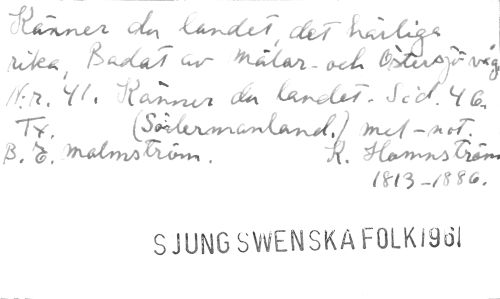 Känner du landet, det härliga
rika, Badat av Mälar- och Östersjövåg
N:r. 41. Känner du landet. Sid. 46.
Tx. (Södermanland.) mel-not.
B. E. Malmström. K. Hamnström
1813-1886.
SJUNG SWENSKA FOLK 1961